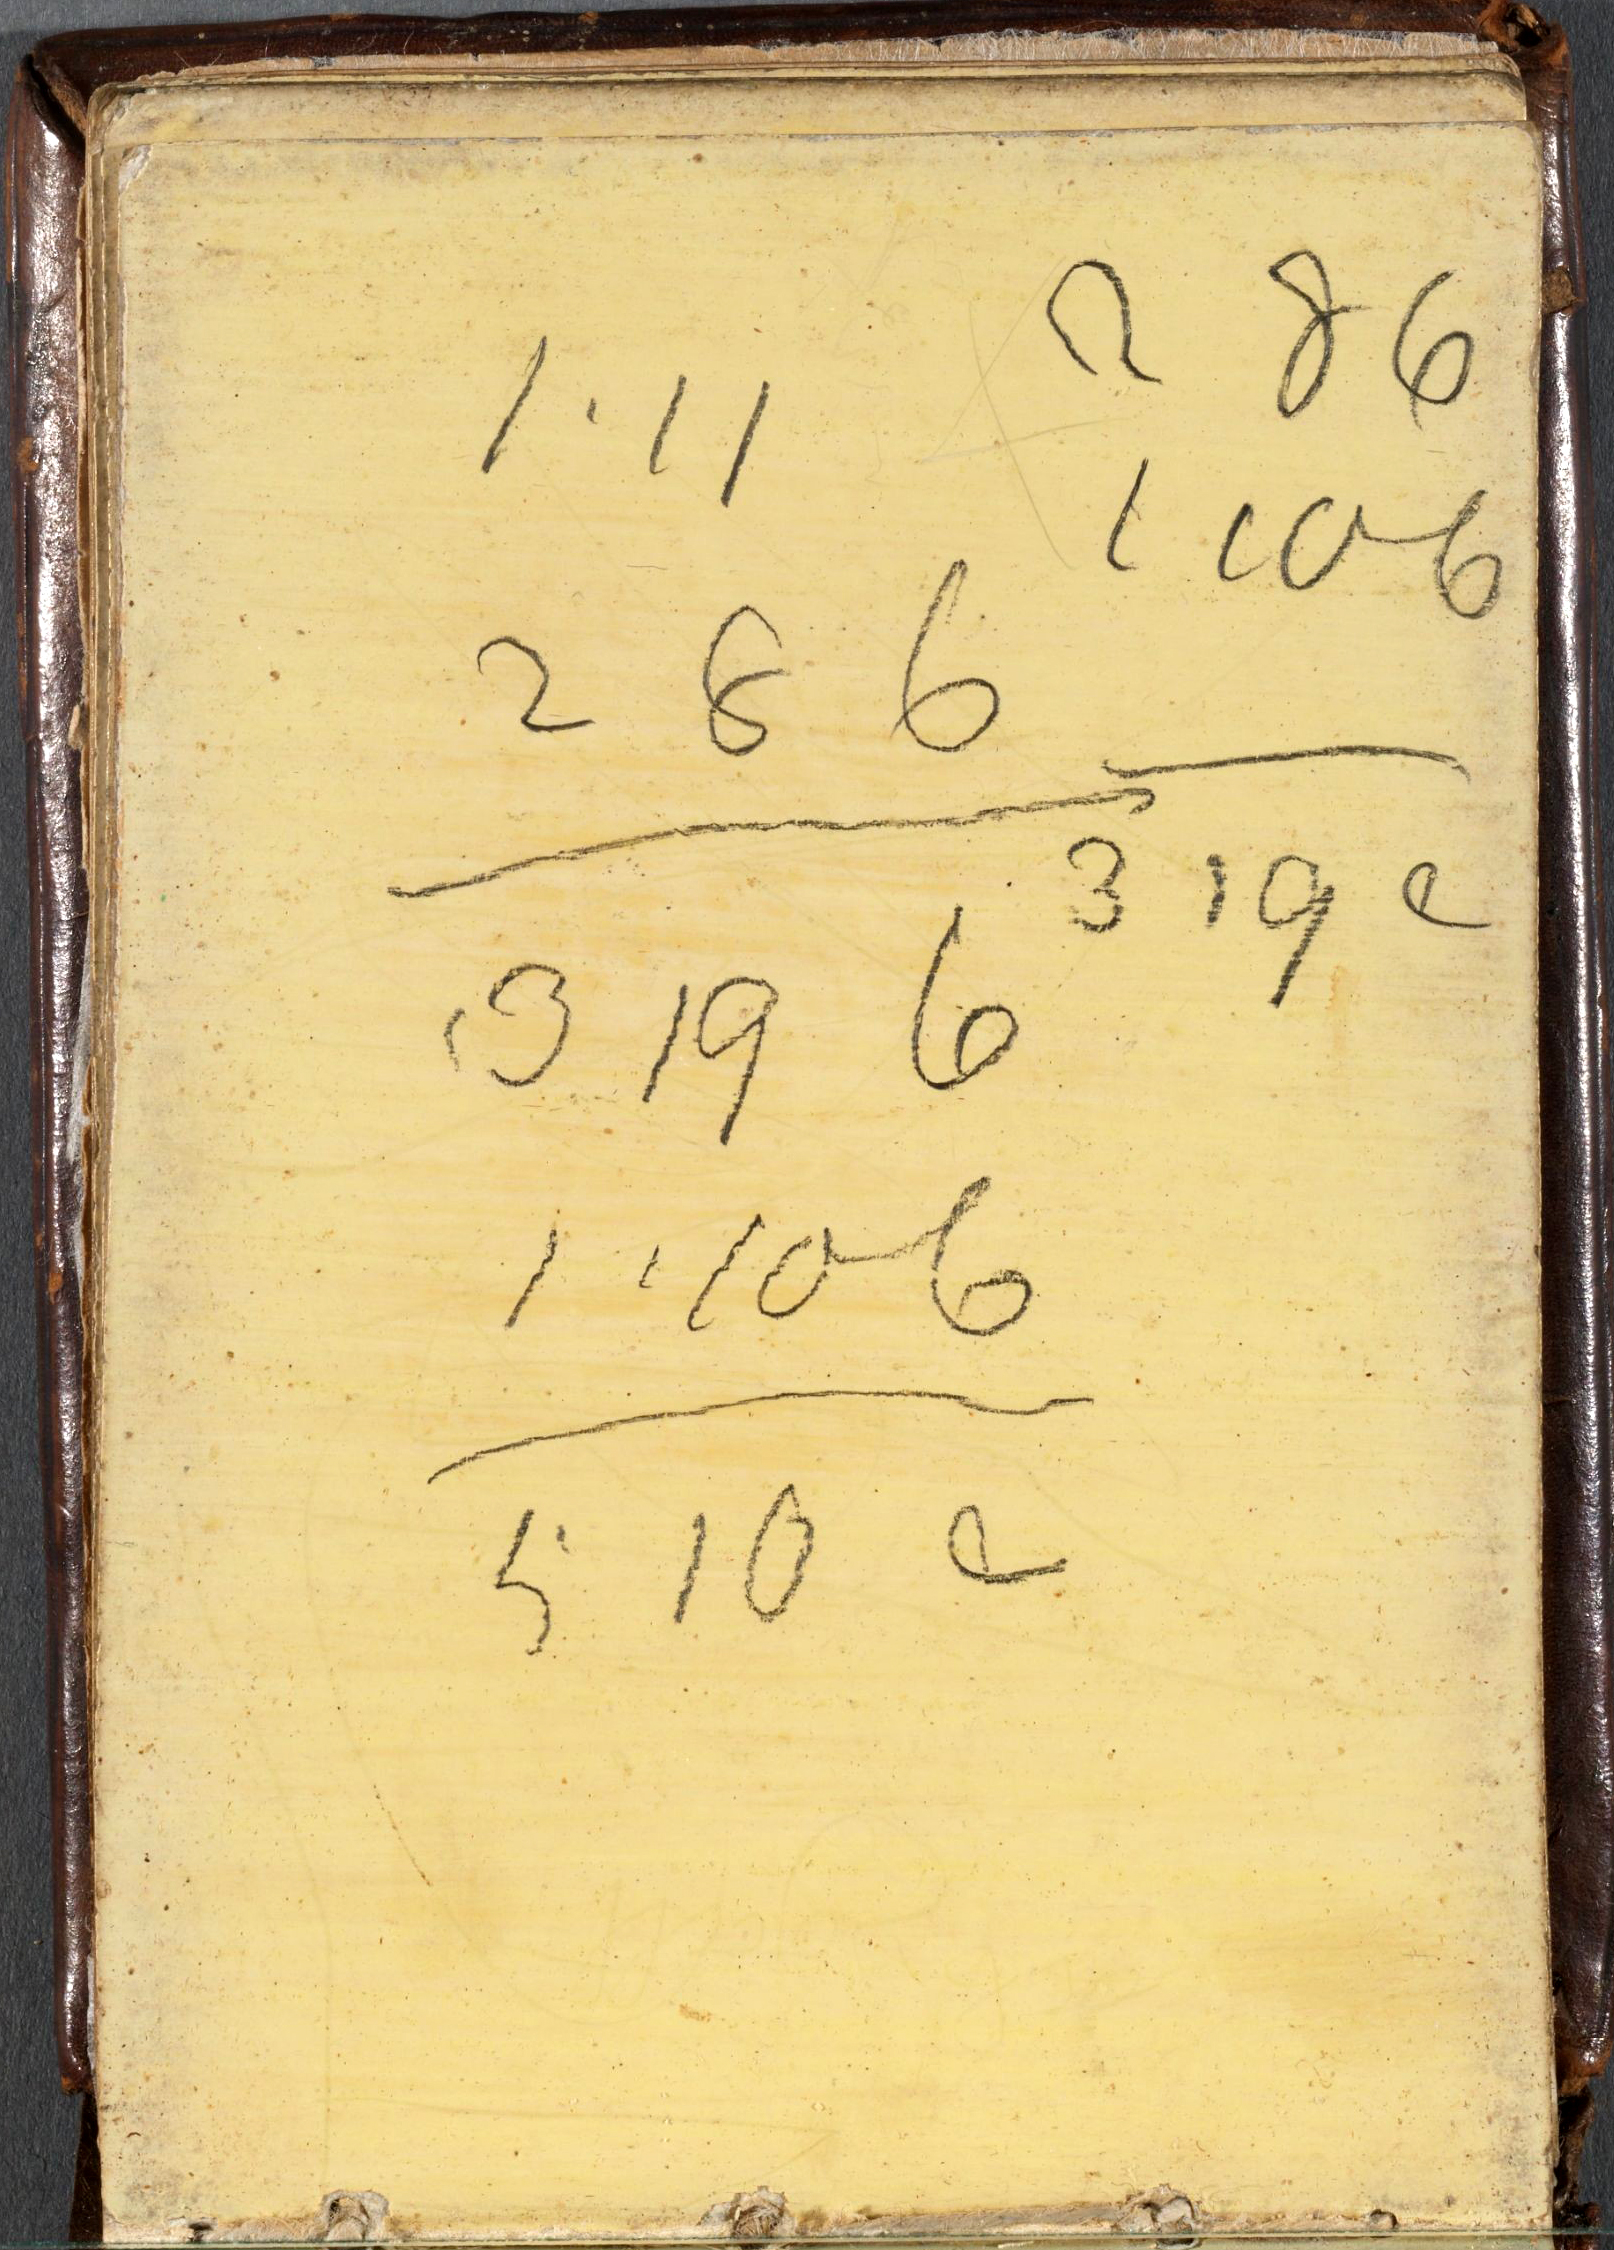 1 · 11
2 8 6
3 19 6
1 · 10 6
5 10 e
2 8 6
1 10 6
3 19 e